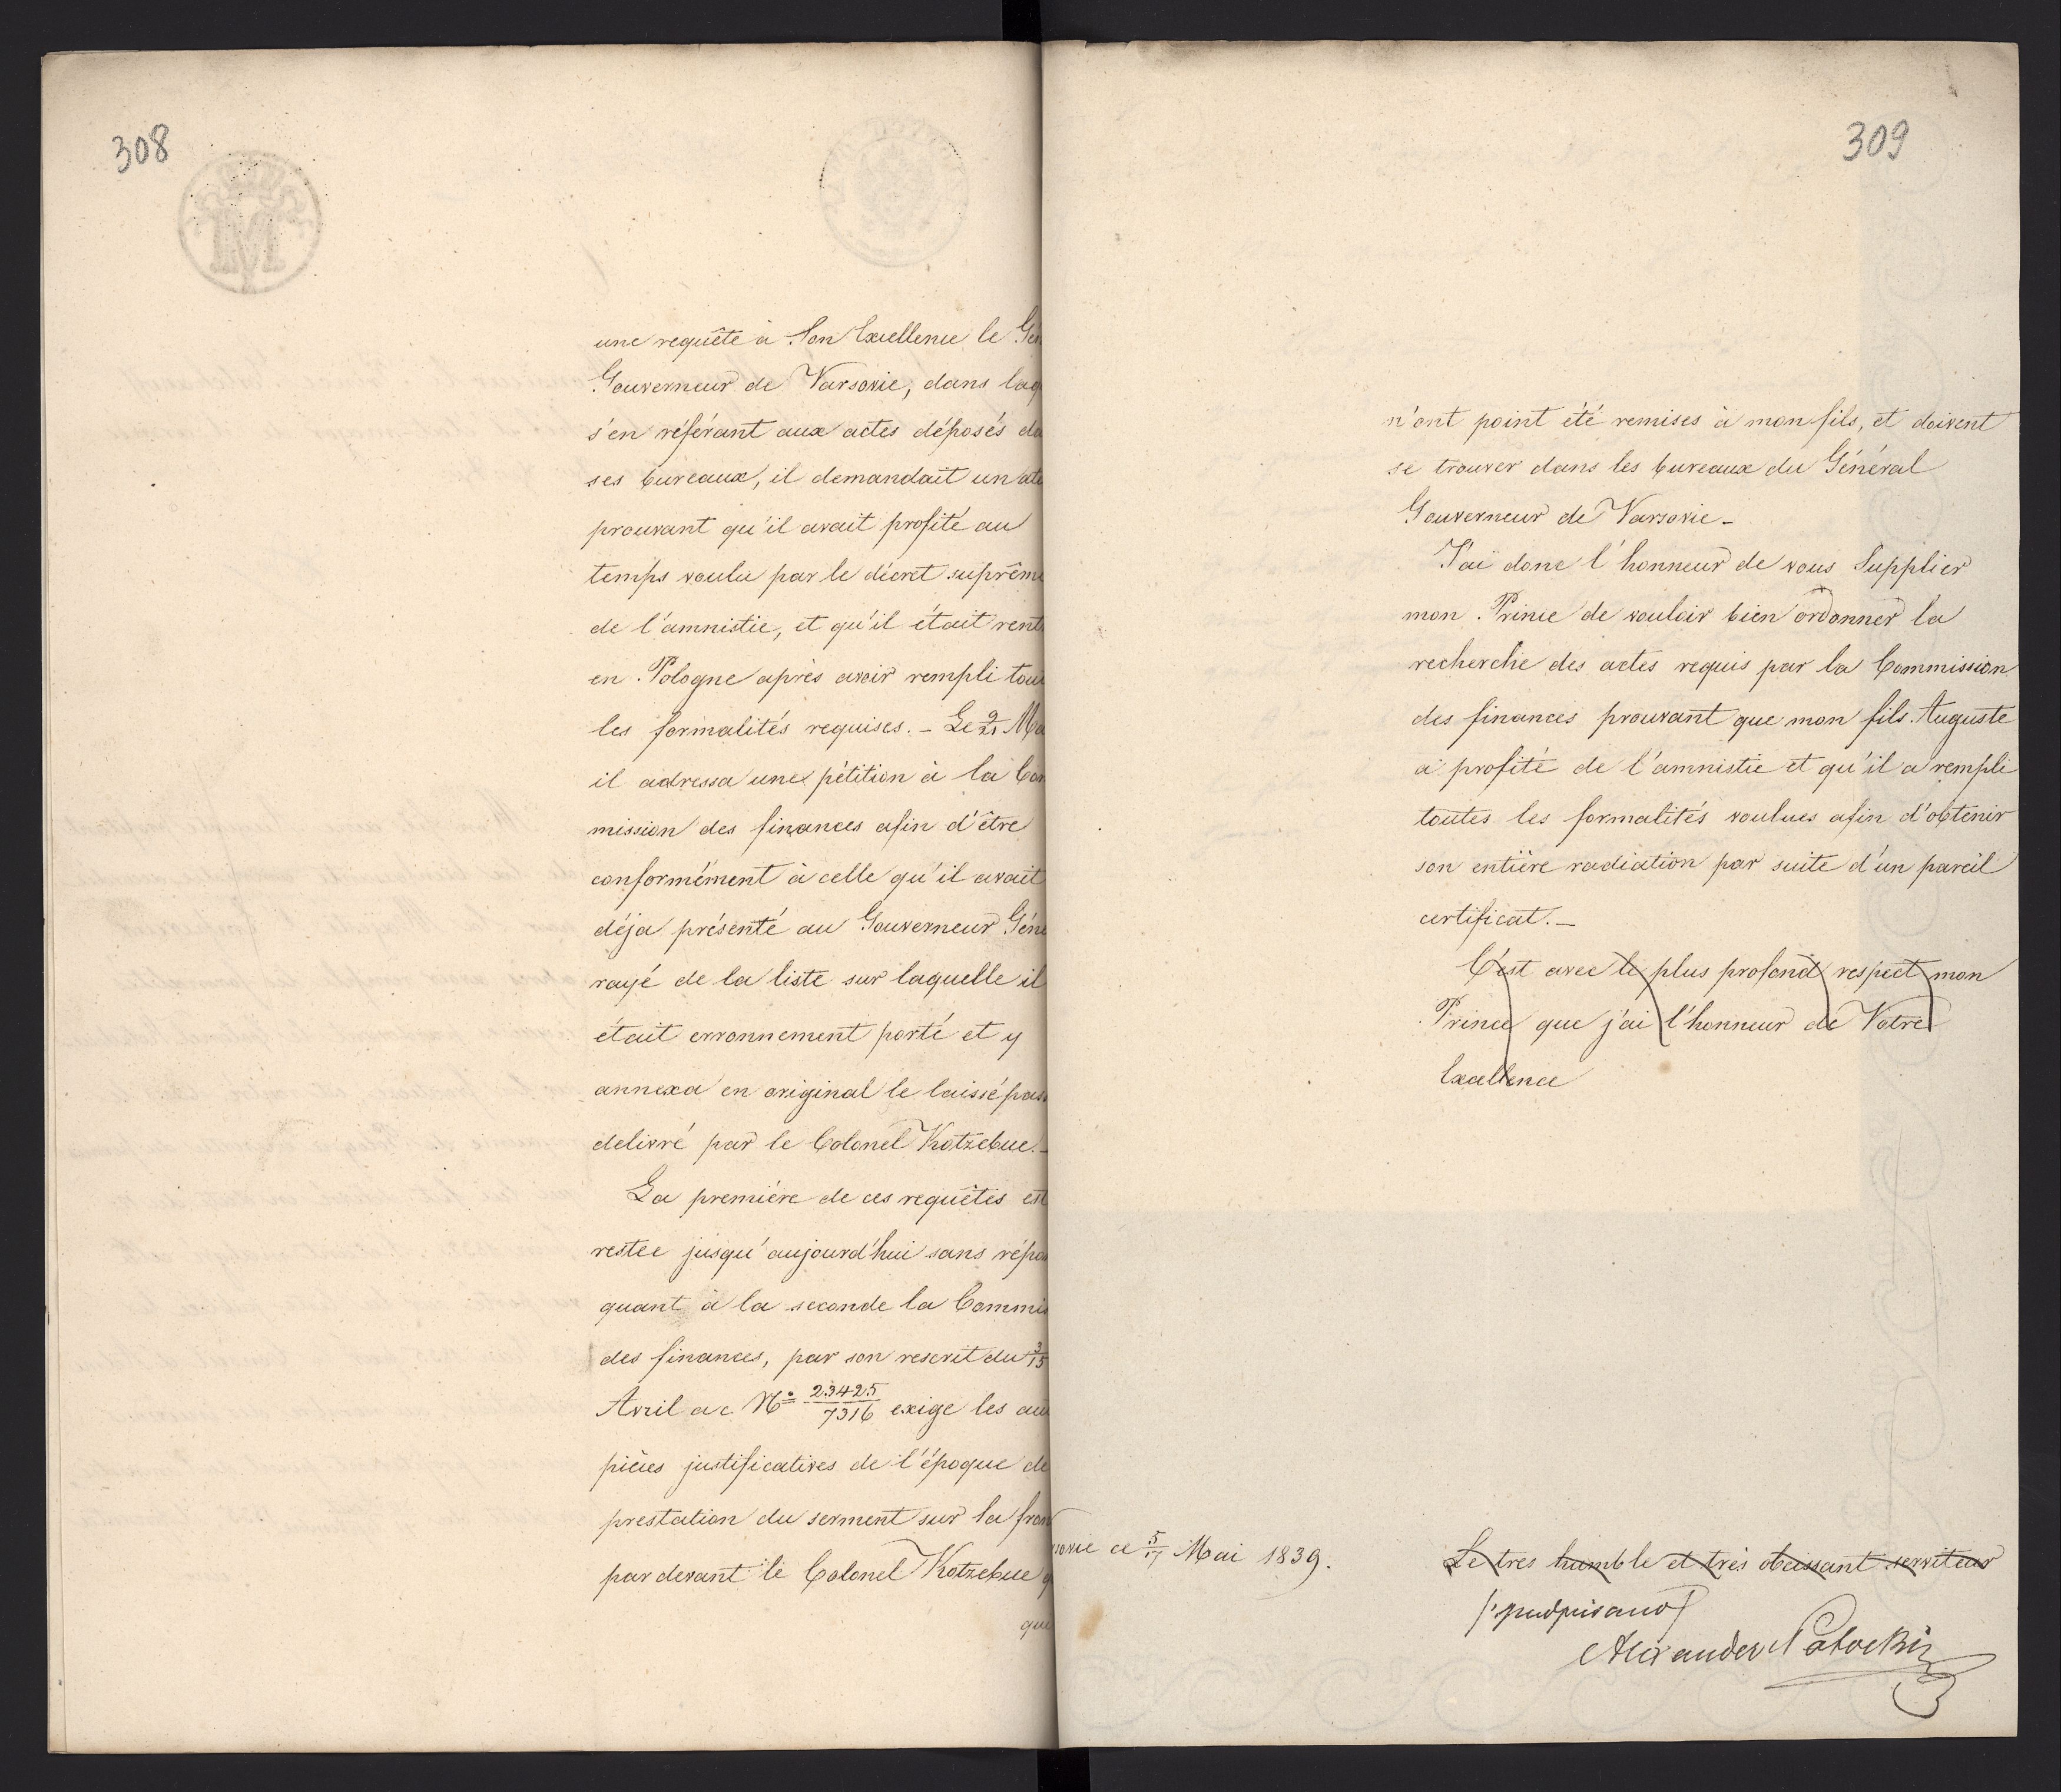 308
une requête à Son Excellence le Gén
Gouverneur de Varsovie, dans laq
s'en référant aux actes déposés da
ses bureaux, il demandait un atte
prouvant qu'il avait profité au
temps voulu par le décret suprême
de l'amnistie, et qu'il était rent
en Pologne après avoir rempli tou
les formalités requises. – Le 9/21 Ma
il adressa une pétition à la Com
mission des finances afin d'être
conformément à celle qu'il avait
déja présenté au Gouverneur Géné
rayé de la liste sur laquelle il
était erronnement porté et y
annexa en original le laissé pass
delivré par le Colonel Kotzebue. –
La première de ces requêtes est
restée jusqu'aujourd'hui sans répon
quant à la seconde la Commis
des finances, par son rescrit du 3/15
Avril a c No 23425/7316 exige les aut
pièces justificatives de l'époque de
prestation du serment sur la fron
par devant le Colonel Kotzebue q
que
309
n'ont point été remises à mon fils, et doivent
se trouver dans les bureaux du Général
Gouverneur de Varsovie –
J'ai donc l'honneur de vous Supplier
mon Prince de vouloir bien ordonner la
recherche des actes requis par la Commission
des finances prouvant que mon fils Auguste
a profité de l'amnistie et qu'il a rempli
toutes les formalités voulues afin d'obtenir
son entière radiation par suite d'un pareil
certificat. –
C'est avec le plus profond respect mon
Prince que j'ai l'honneur de Votre
Excellence
sovie ce 5/17 Mai 1839.
Le tres humble et très obeissant serviteur
/:podpisano/
Alexander Potocki